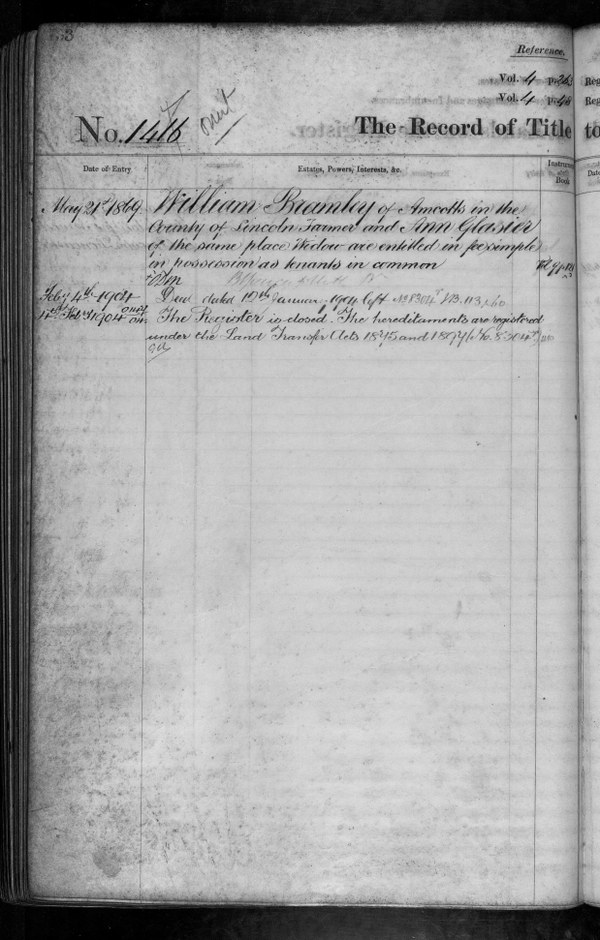 Reference.
Vol. 4 p.
Vol. 4 p. 48
No. 1416 omit
The Record of Title to
Date of Entry
Estates, Powers, Interests, &c.
Book
May 21st 1869 William Bramley of Amcotts in the
County of Lincoln Farmer and Ann Glasier
of the same place Widow are entitled in fee simple
in possession as tenants in common
Feby 4th 1904 Deed dated 19th January 1904 left
4th Feb 1904 The Register is closed. The hereditaments are registered
under the Land Transfer Acts 1875 and 1897